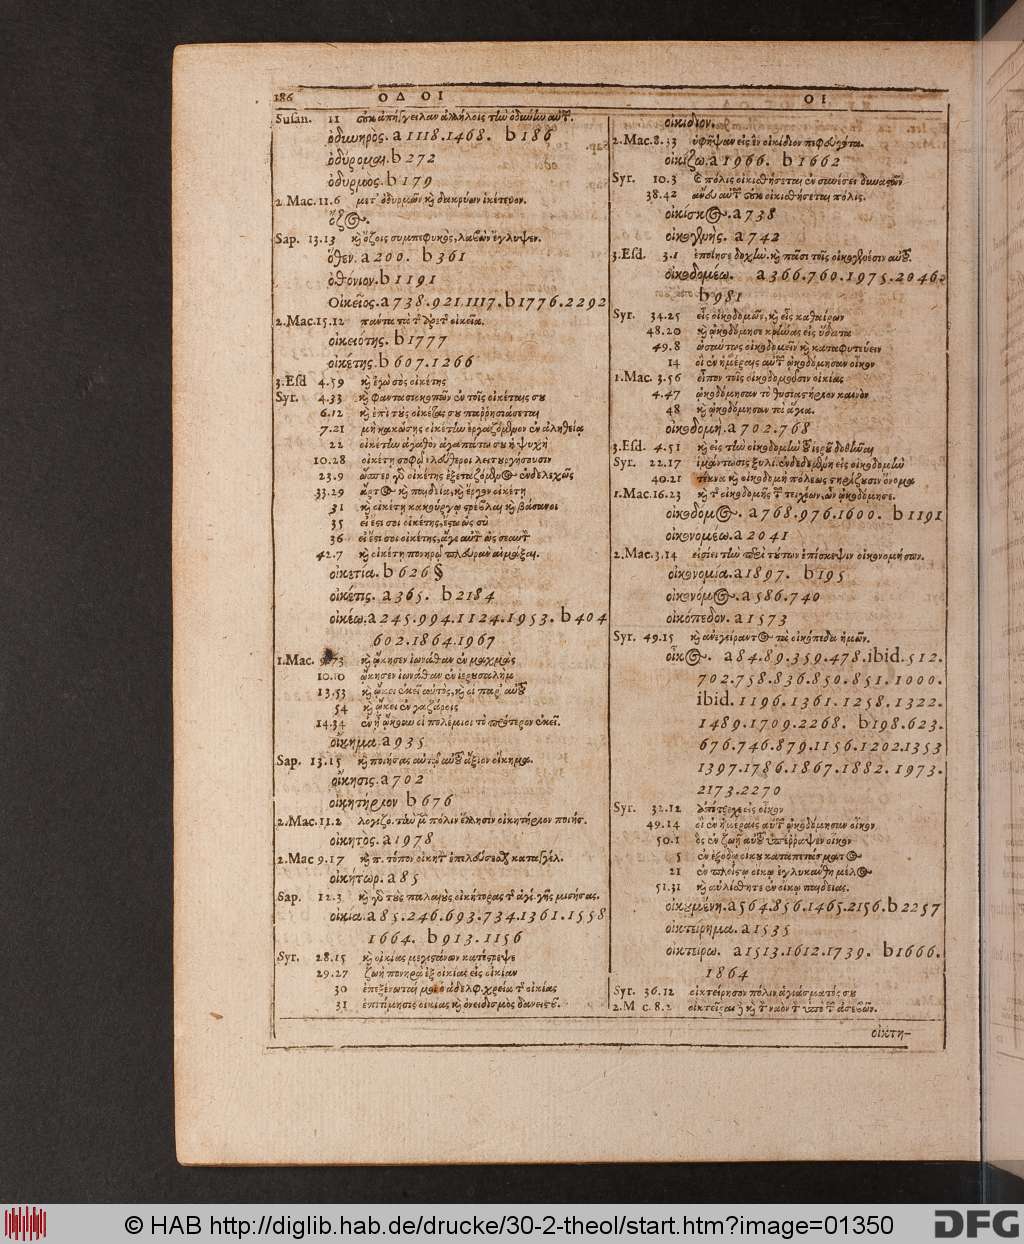 186 ΟΔ ΟΙ ΟΙ
Susan. 11
ὀδυνηρὸς. a 1118.1468. b 186
ὀδύρομαι. b 272
ὀδυρμος. b 179
2. Mac. 11.6 μετ' ὀδυρμῶν κỳ δακρύων ἱκέτευον.
ὄζος.
Sap. 13.13 κỳ ὄζοις συμπεφυκὸς, λαβὼν ἔγλυψεν.
ὅθεν. a 200. b 361
ὀθόνιον. b 1191
Οἰκεῖος. a 738.921.1117. b 1776.2292
2. Mac. 15.12
οἰκειότης. b 1777
οἰκέτης. b 607.1266
3. Esd 4.59 κỳ ἐγὼ σὸς οἰκέτης
Syr. 4.33 κỳ φαντασιοκοπῶν ἐν τοῖς οἰκέταις σου
6.12
7.21 μὴ κακώσης οἰκέτην ἐργαζόμενον ἐν ἀληθεία
22 οἰκέτην ἀγαθὸν ἀγαπάτω σου ἡ ψυχή
10.28 οἰκέτῃ σοφῷ ἐλεύθεροι λειτουργήσουσιν
23.9 ὥσπερ γὰρ οἰκέτης ἐξεταζόμενος ἐνδελεχῶς
33.29 ἄρτος κỳ παιδεία, κỳ ἔργον οἰκέτῃ
31 κỳ οἰκέτῃ κακούργῳ στρέβλαι κỳ βάσανοι
35 εἰ ἔστι σοι οἰκέτης, ἔστω ὡς σὺ
36 εἰ ἔστι σοι οἰκέτης, ἄγε αὐτὸν ὡς σεαυτὸν
42.7 κỳ οἰκέτῃ πονηρῷ πλευρὰν αἱμάξαι.
οἰκετία. b 626 §
οἰκέτις. a 365. b 2184
οἰκέω. a 245.994.1124.1953. b 404
602.1864.1967
1. Mac. 9.73 κỳ ᾤκησεν ἰωνάθαν ἐν μαχμὰς
10.10 ᾤκησεν ἰωνάθαν ἐν ἱερουσαλὴμ
13.53 κỳ ᾤκει ἐκεῖ αὐτὸς, κỳ οἱ παρ' αὐτοῦ
54 κỳ ᾤκει ἐν γαζάροις
14.34 ἐν ᾗ ᾤκουν οἱ πολέμιοι τὸ πρότερον ἐκεῖ.
οἴκημα. a 935
Sap. 13.15 κỳ ποιήσας αὐτῷ αὐτοῦ ἄξιον οἴκημα.
οἴκησις. a 702
οἰκητήριον b 676
2. Mac. 11.2 πόλιν ἕλλησιν οἰκητήριον ποιήσ.
οἰκητὸς. a 1978
2. Mac 9.17 κỳ π. τόπον οἰκητ
οἰκήτωρ. a 85
Sap. 12.3 κỳ γὸ τοὺς παλαιοὺς οἰκήτορας τ ἁγί. γῆς μισήσας.
οἰκία. a 85.246.693.734.1361.1558
1664. b 913.1156
Syr. 28.15 κỳ οἰκίας μεγιστάνων κατέστρεψε
29.27 ζωὴ πονηρὰ ἐξ οἰκίας εἰς οἰκίαν
30
31 ἐπιτίμησις οἰκίας κỳ ὀνειδισμὸς δανειστοῦ.
οἰκίδιον.
2. Mac. 8.33 ὑφῆψαν εἰς ἓν οἰκίδιον πεφευγότα.
οἰκίζω. a 1966. b 1662
Syr. 10.3 κỳ πόλις οἰκισθήσεται ἐν συνέσει δυναστῶν
38.42 ἄνευ αὐτῶν οὐκ οἰκισθήσεται πόλις.
οἰκίσκος. a 738
οἰκογενὴς. a 742
3. Esd. 3.1 ἐποίησε δοχὴν κỳ πᾶσι τοῖς οἰκογενέσιν αὐτοῦ.
οἰκοδομέω. a 366.760.1975.2046.
b 981
Syr. 34.25 εἷς οἰκοδομῶν, κỳ εἷς καθαιρῶν
48.20 κỳ ᾠκοδόμησε κρήνας εἰς ὕδατα
49.8 ὡσαύτως οἰκοδομεῖν κỳ καταφυτεύειν
14 οἱ ἐν ἡμέραις αὐτῶν ᾠκοδόμησαν οἶκον
1. Mac. 3.56 εἶπον τοῖς οἰκοδομοῦσιν οἰκίας
4.47 ᾠκοδόμησαν τὸ θυσιαστήριον καινὸν
48 κỳ ᾠκοδόμησαν τὰ ἅγια.
οἰκοδομή. a 702.768
3. Esd. 4.51 κỳ εἰς τὴν οἰκοδομὴν τοῦ ἱεροῦ δοθῆναι
Syr. 22.17 ἱμάντωσις ξυλί. ἐνδεδεμένη εἰς οἰκοδομὴν
40.21 τέκνα κỳ οἰκοδομὴ πόλεως στηρίζουσιν ὄνομα
1. Mac. 16.23 κỳ τ οἰκοδομῆς τ τειχέων, ὧν ᾠκοδόμησε.
οἰκοδόμος. a 768.976.1600. b 1191
οἰκονομέω. a 2041
2. Mac. 3.14 εἰσίει τὴν περὶ τούτων ἐπίσκεψιν οἰκονομήσων.
οἰκονομία. a 1897. b 195
οἰκονόμος. a 586.740
οἰκόπεδον. a 1573
Syr. 49.15 κỳ ἀνεγείραντος τὰ οἰκόπεδα ἡμῶν.
οἶκος. a 84.89.359.478. ibid. 512.
702.758.836.850.851.1000.
ibid. 1196.1361.1258.1322.
1489.1709.2268. b 198.623.
676.746.879.1156.1202.1353
1397.1786.1867.1882.1973.
2173.2270
Syr. 32.12 ἀπότρεχε εἰς οἶκον
49.14 οἳ ἐν ἡμέραις αὐτῶν ᾠκοδόμησαν οἶκον
50.1 ὃς ἐν ζωῇ αὐτοῦ ὑπέρραψεν οἶκον
5 ἐν ἐξόδῳ οἴκου καταπετάσματος
21 ἐν πλείστῳ οἴκῳ ἐγλυκάνθη μέλος
51.31 κỳ αὐλίσθητε ἐν οἴκῳ παιδείας.
οἰκουμένη. a 564.856.1465.2156. b 2257
οἰκτείρημα. a 1535
οἰκτείρω. a 1513.1612.1739. b 1666.
1864
Syr. 36.12 οἰκτείρησον πόλιν ἁγιάσματός σου
2. M c. 8.2 οἰκτεῖραι κỳ τ ναὸν τ ὑπὸ τ ἀσεβῶν.
οἰκτη-
© HAB http://diglib.hab.de/drucke/30-2-theol/start.htm?image=01350 DFG